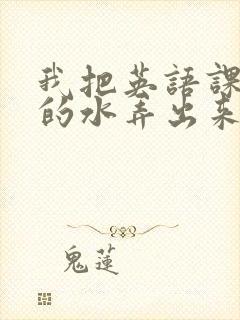 我把英語課
的水弄出來
鬼蓮